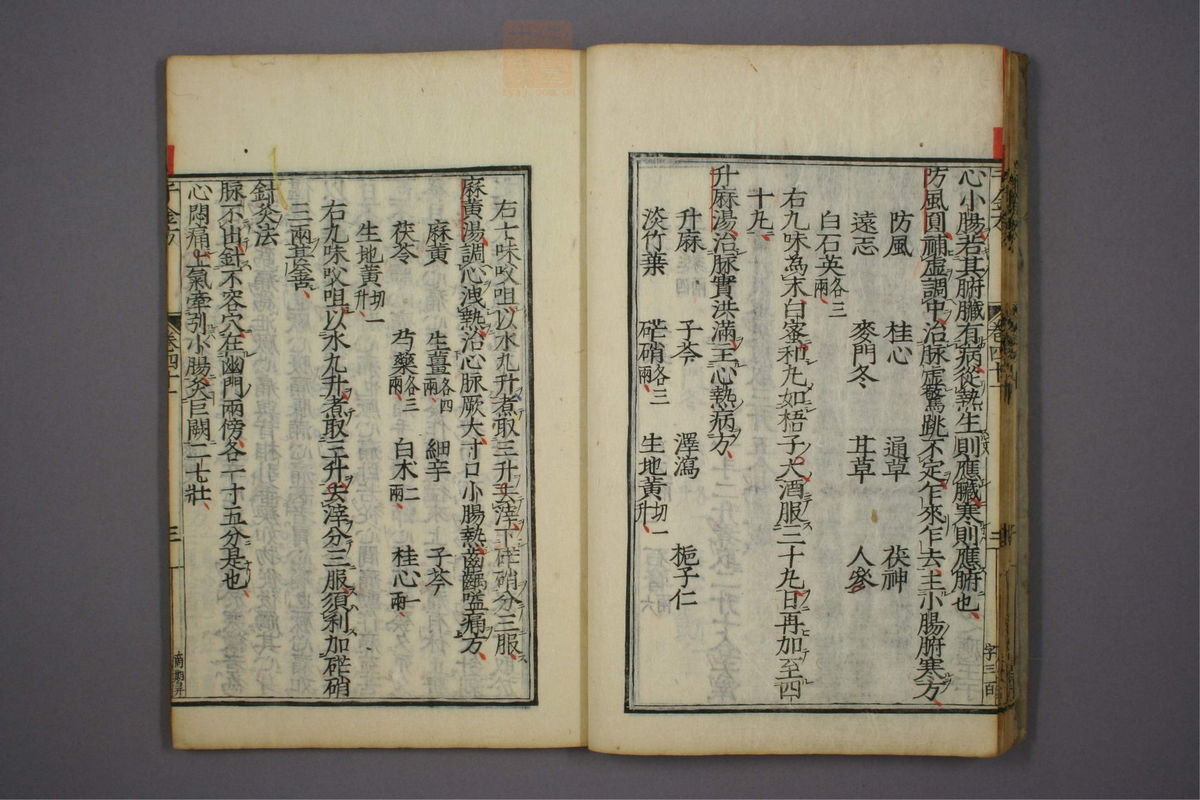 心小腸若其腑臟有病從熱生則應臟寒則應腑也
防風圓補虛調中治脉虛驚跳不定乍來乍去主小腸腑寒方
防風　桂心　通草　茯神
遠志　麥門冬　甘草　人參
白石英各三兩
右九味為末白蜜和丸如梧子大酒服三十丸日再加至四
十丸
升麻湯治脉實洪滿主心熱病方
升麻　子芩　澤瀉　梔子仁
淡竹葉　芒硝各三兩　生地黃切一升
右七味㕮咀以水九升煮取三升去滓下芒硝分三服
麻黃湯調心洩熱治心脉厥大寸口小腸熱齒齲嗌痛方
麻黃　生薑各四兩　細辛　子芩
茯苓　芍藥各三兩　白朮二兩　桂心一兩
生地黃切一升
右九味㕮咀以水九升煮取三升去滓分三服須利加芒硝
三兩甚善
針灸法
脉不出針不容穴在幽門兩傍各一寸五分是也
心悶痛上氣牽引小腸灸巨闕二七壯
千金方
卷四十一
三